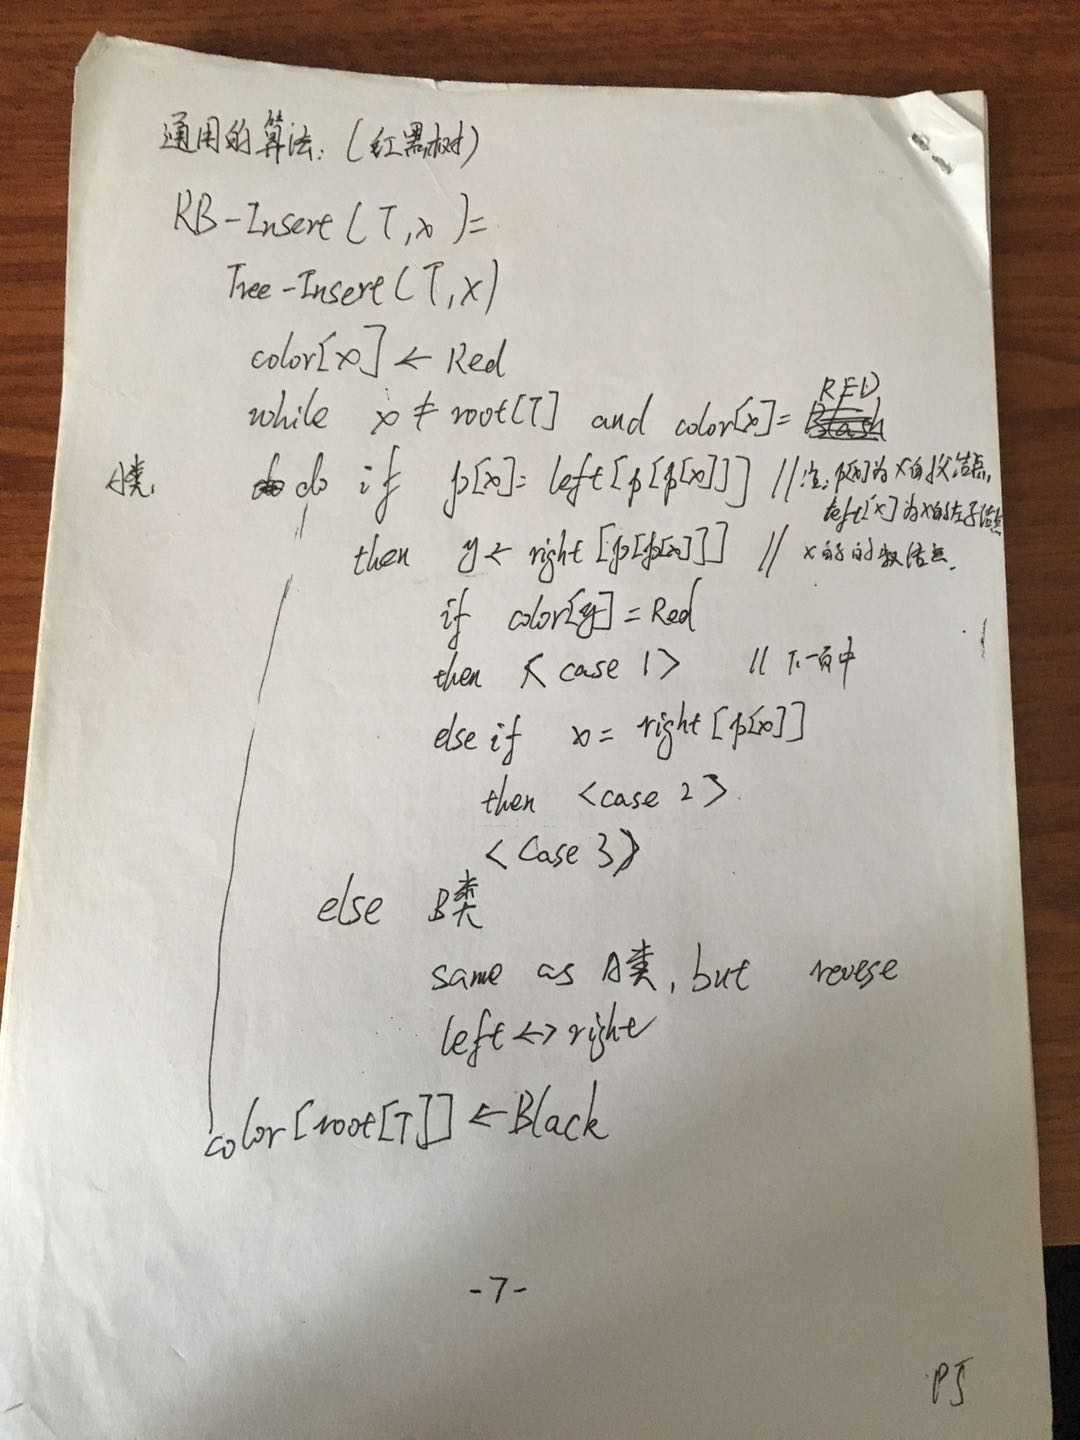 通用的算法:(红黑树)
RB-Insert(T,x)=
Tree-Insert(T,x)
color[x] ← Red
RED
while x ≠ root[T] and color[x]=
A类. do if p[x]= left[p[p[x]]] //注:p[x]为x的父结点,
left[x]为x的左子结点
then y← right[p[p[x]]] // x的的叔结点.
if color[y]=Red
then <case 1> // 下一页中
else if x= right[p[x]]
then <case 2>
<Case 3>
else B类
same as A类, but revese
left <-> right
color[root[T]] ←Black
-7-